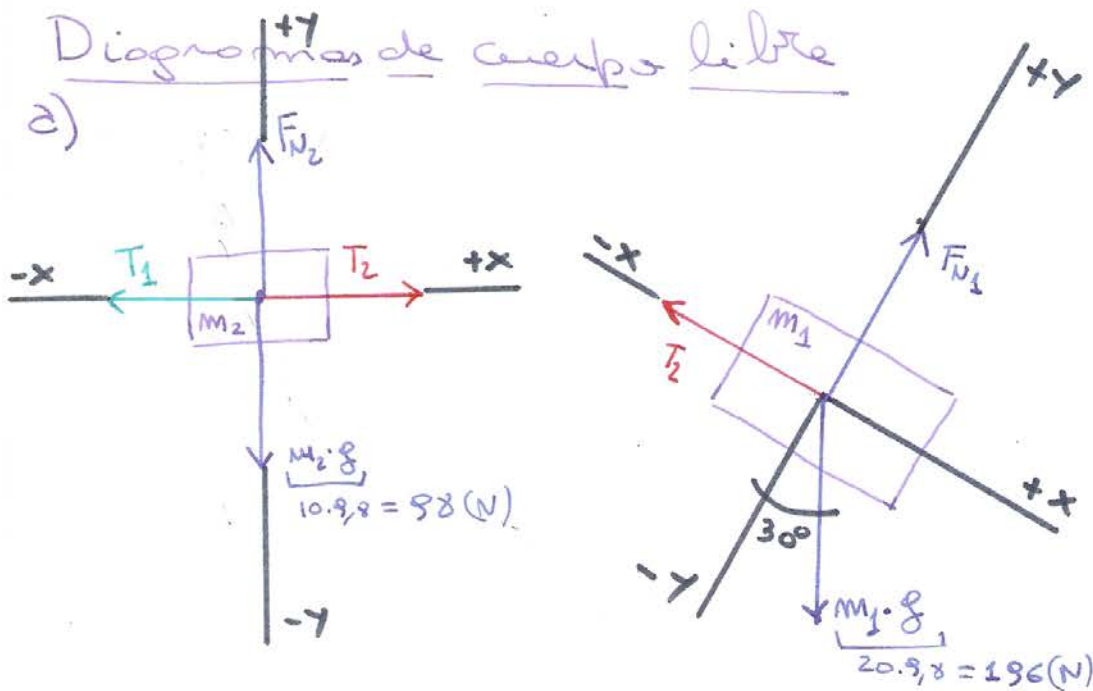 Diagramas de cuerpo libre
a)
+Y
F_N₂
-X
T₁
T₂
+X
m₂
m₂·g
10·9,8 = 98 (N)
-Y
+Y
F_N₁
-X
m₁
T₂
+X
30°
-Y
m₁·g
20·9,8 = 196 (N)